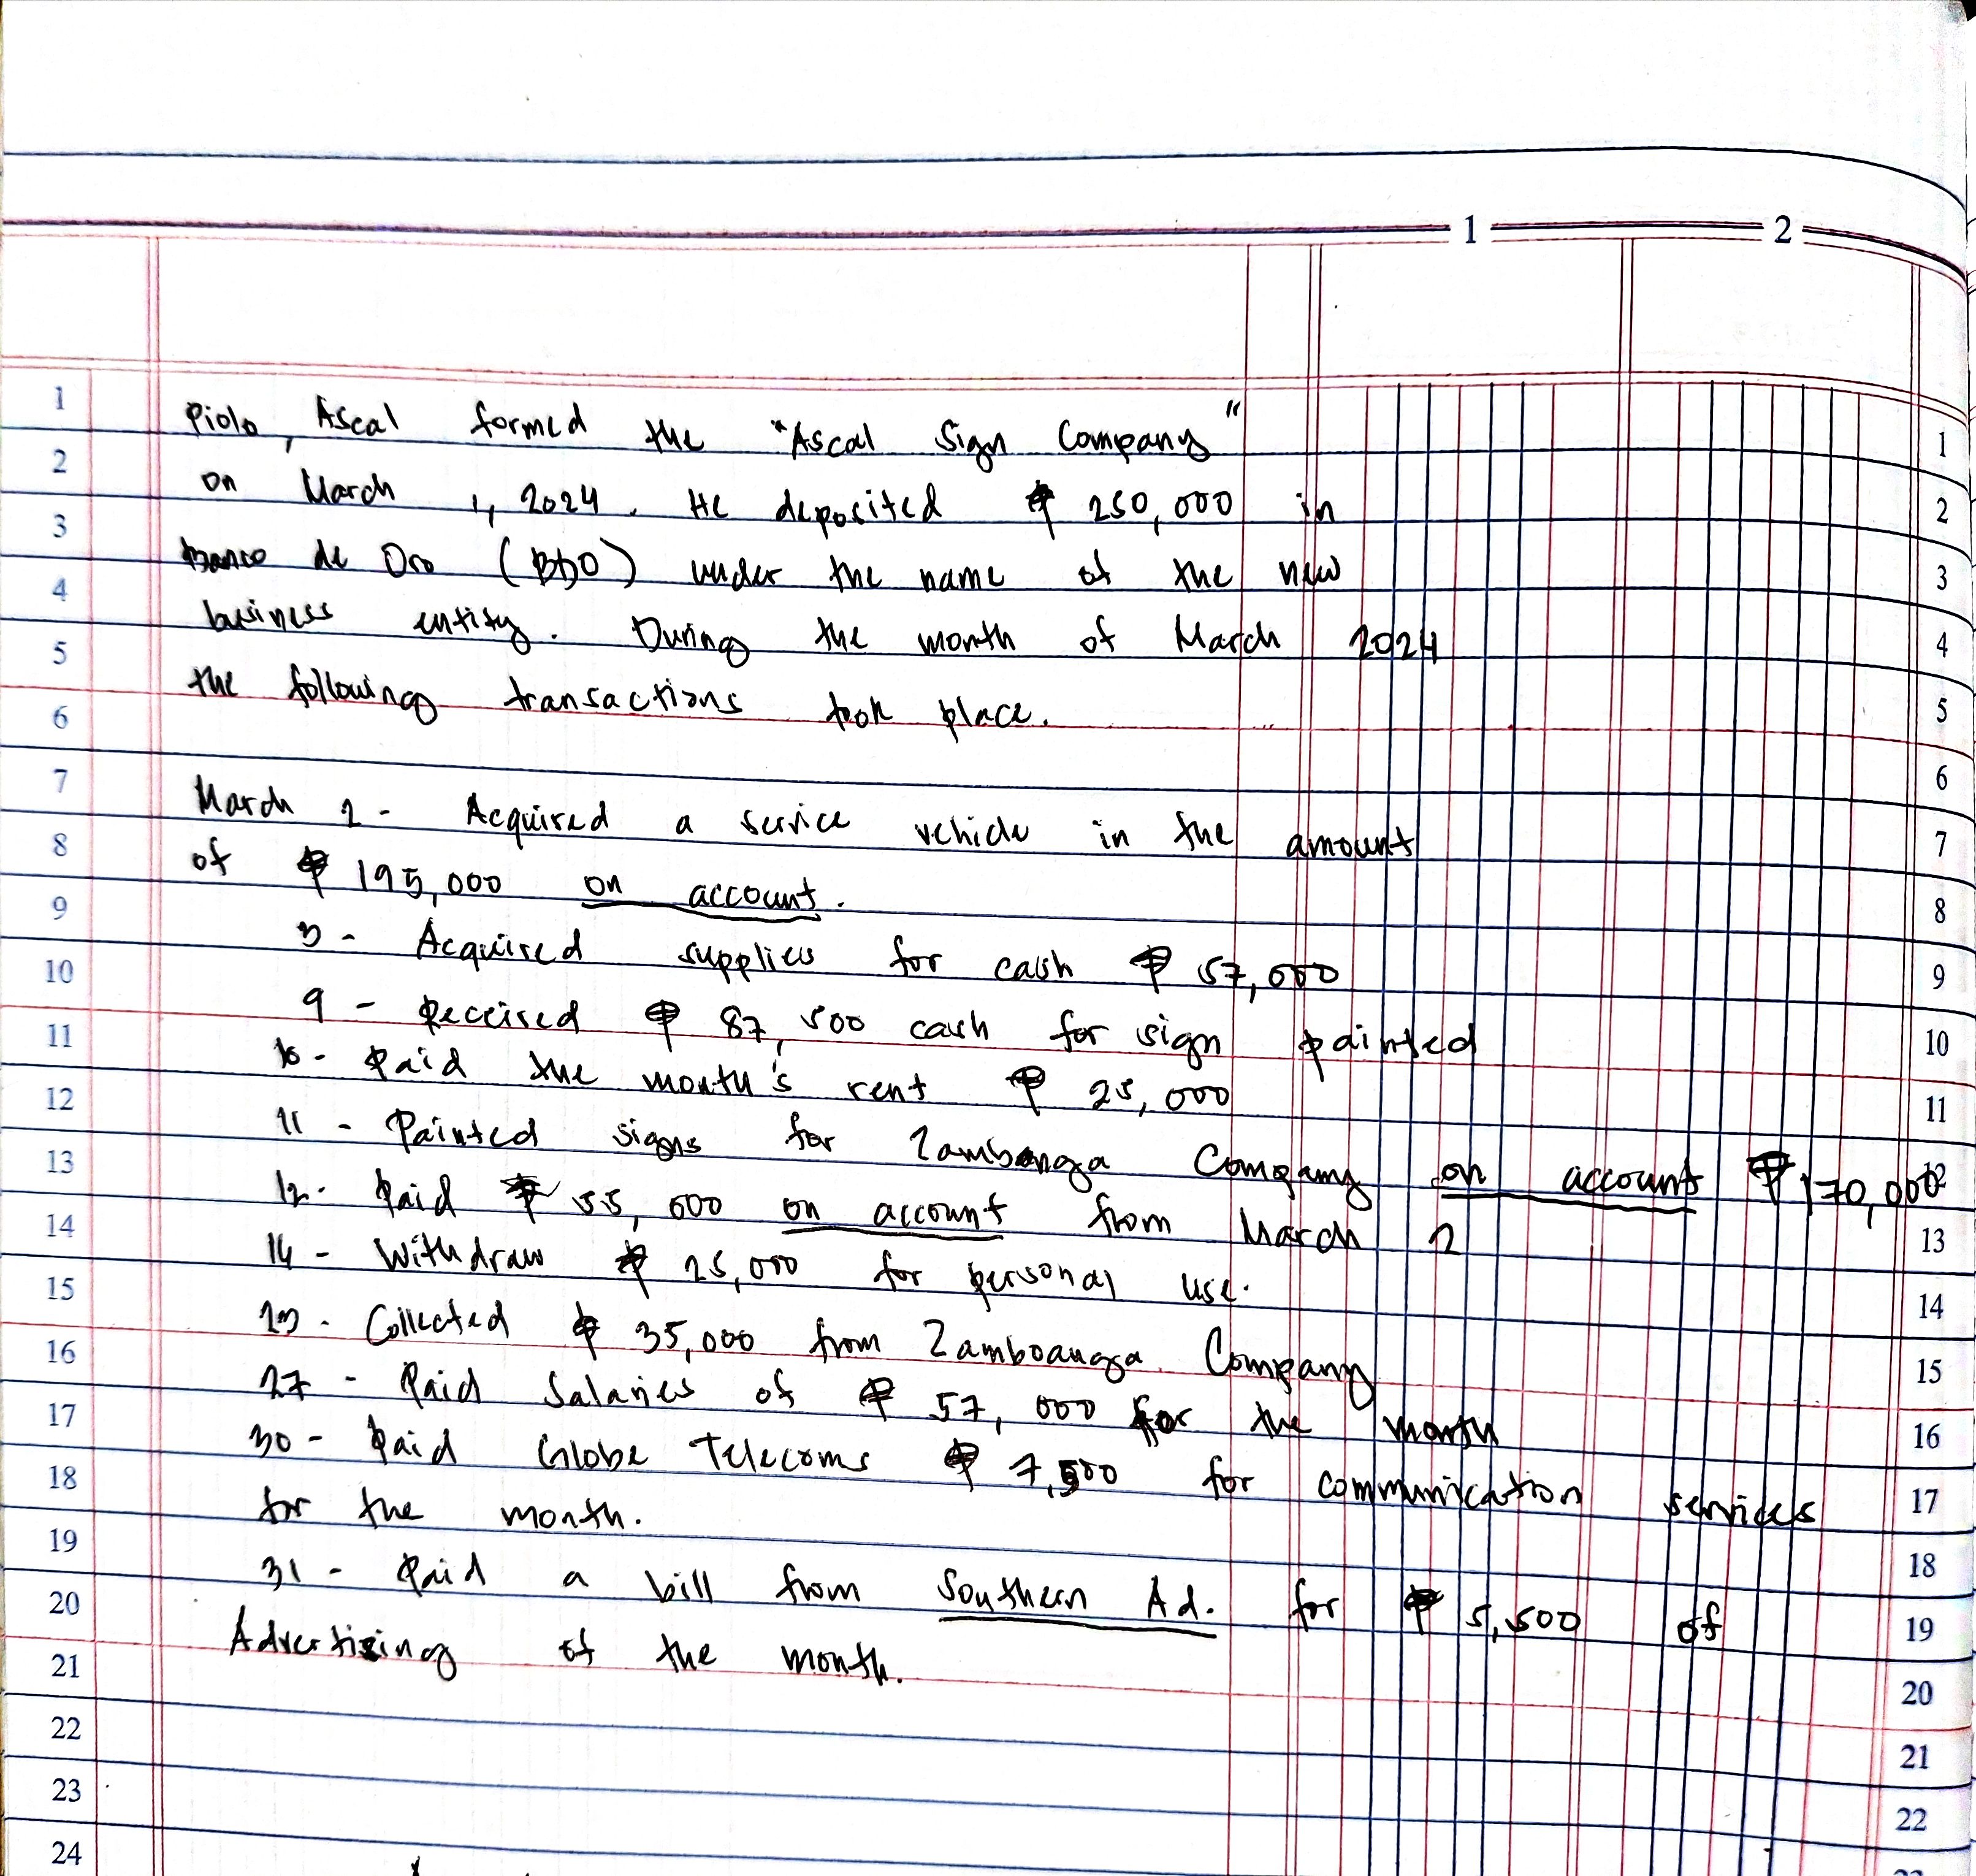 1 2
1 Piolo, Ascal formed the "Ascal Sign Company" 1
2 on March 1, 2024. He deposited ₱ 250,000 in 2
3 Banco de Oro (BDO) under the name of the new 3
4 business entity. During the month of March 2024 4
5 the following transactions took place. 5
6 6
7 March 2 - Acquired a service vehicle in the amount 7
8 of ₱ 195,000 on account. 8
9 3 - Acquired supplies for cash ₱ 57,000 9
10 9 - Received ₱ 87,500 cash for sign painted 10
11 10 - Paid the month's rent ₱ 25,000 11
12 11 - Painted signs for Zambanga Company on account ₱ 170,000 12
13 12 - Paid ₱ 55,000 on account from March 2 13
14 14 - Withdraw ₱ 25,000 for personal use. 14
15 23 - Collected ₱ 35,000 from Zamboanga Company 15
16 27 - Paid Salaries of ₱ 57,000 for the month 16
17 30 - Paid Globe Telecoms ₱ 7,500 for communication services 17
18 for the month. 18
19 31 - Paid a bill from Southern Ad. for ₱ 5,500 of 19
20 Advertising of the month. 20
21 21
22 22
23
24